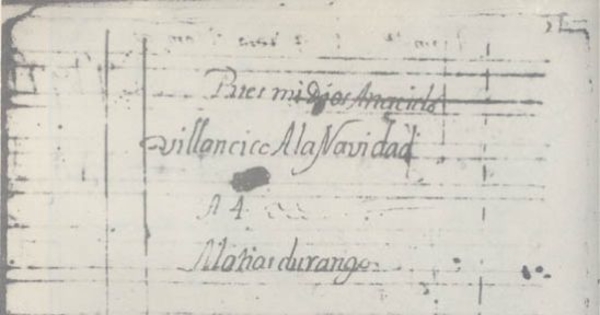 Pues mi Dios A nacido
villancico A la Navidad
A 4
Matias durango